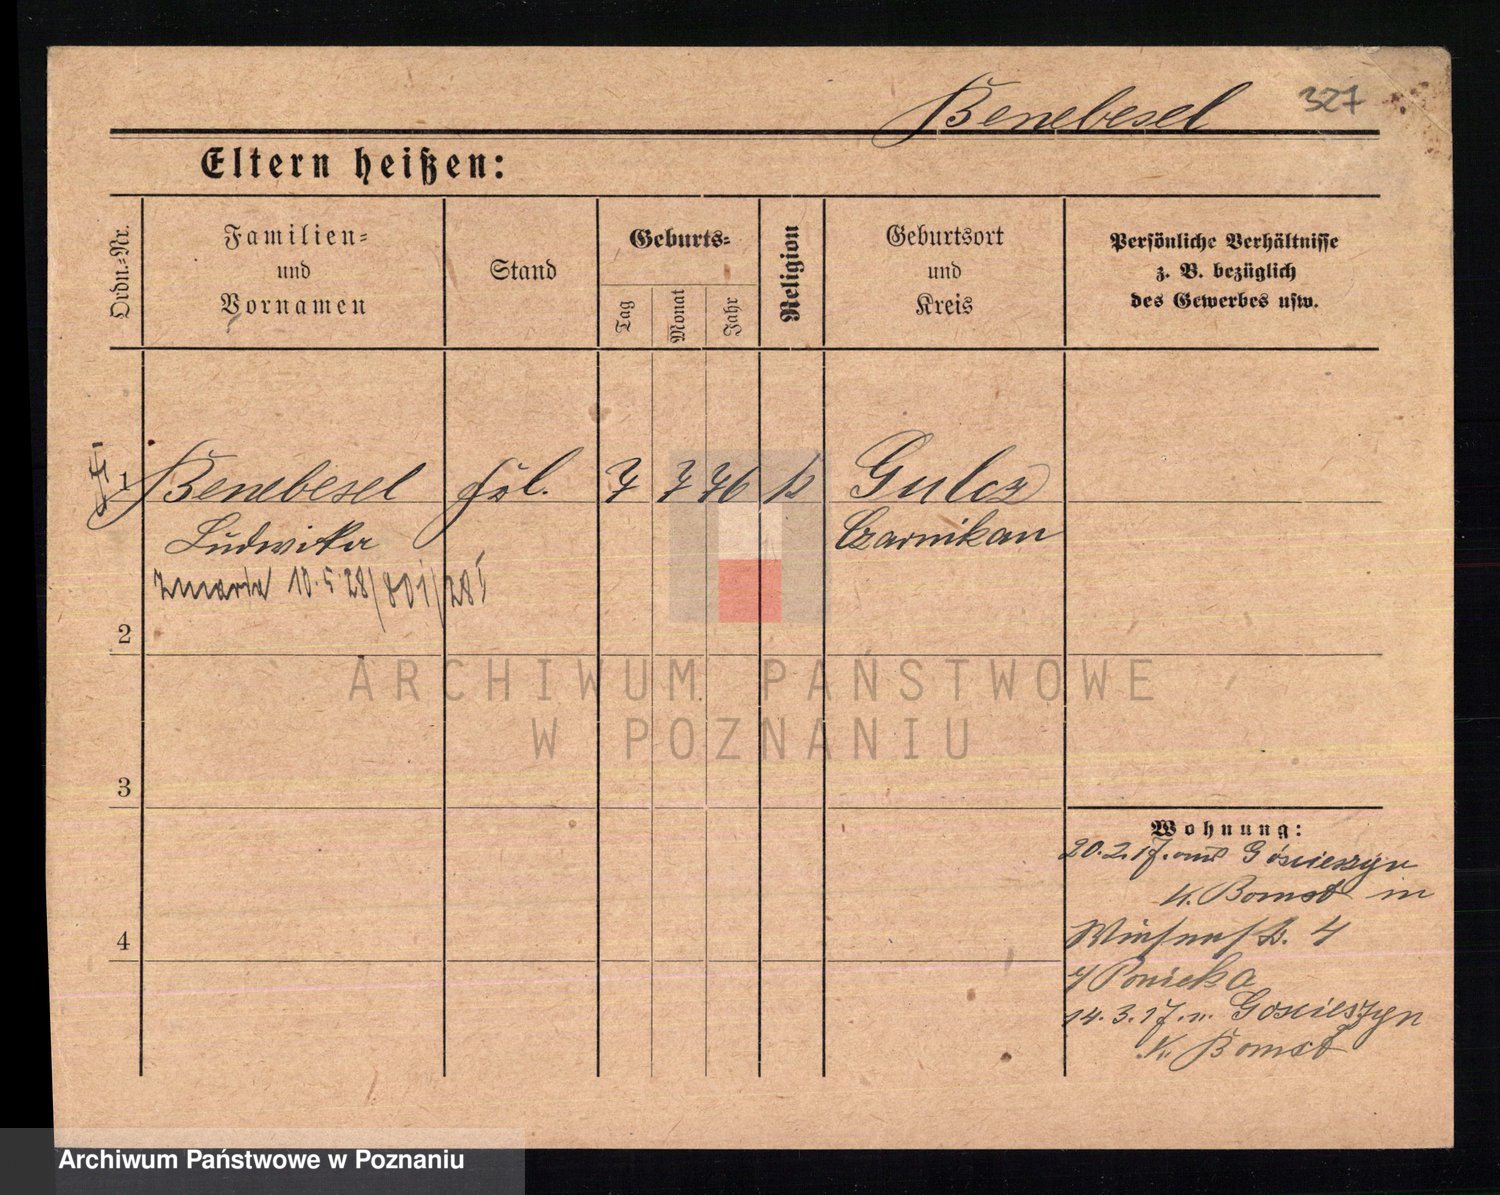 Benebesel 327
Eltern heißen:
Ordn.-Nr.
Familien-
und
Vornamen
Stand
Geburts-
Tag
Monat
Jahr
Religion
Geburtsort
und
Kreis
Persönliche Verhältnisse
z. B. bezüglich
des Gewerbes usw.
1 Benebesel 7 7 76 k Gulcz
Ludwika Czarnikau
zmarła 10.5.28/801/28
2
ARCHIWUM PAŃSTWOWE
W POZNANIU
3
Wohnung:
20.2.17. aus Gościeszyn
K. Bomst in
4
4
14.3.17. n. Gościeszyn
K. Bomst
Archiwum Państwowe w Poznaniu